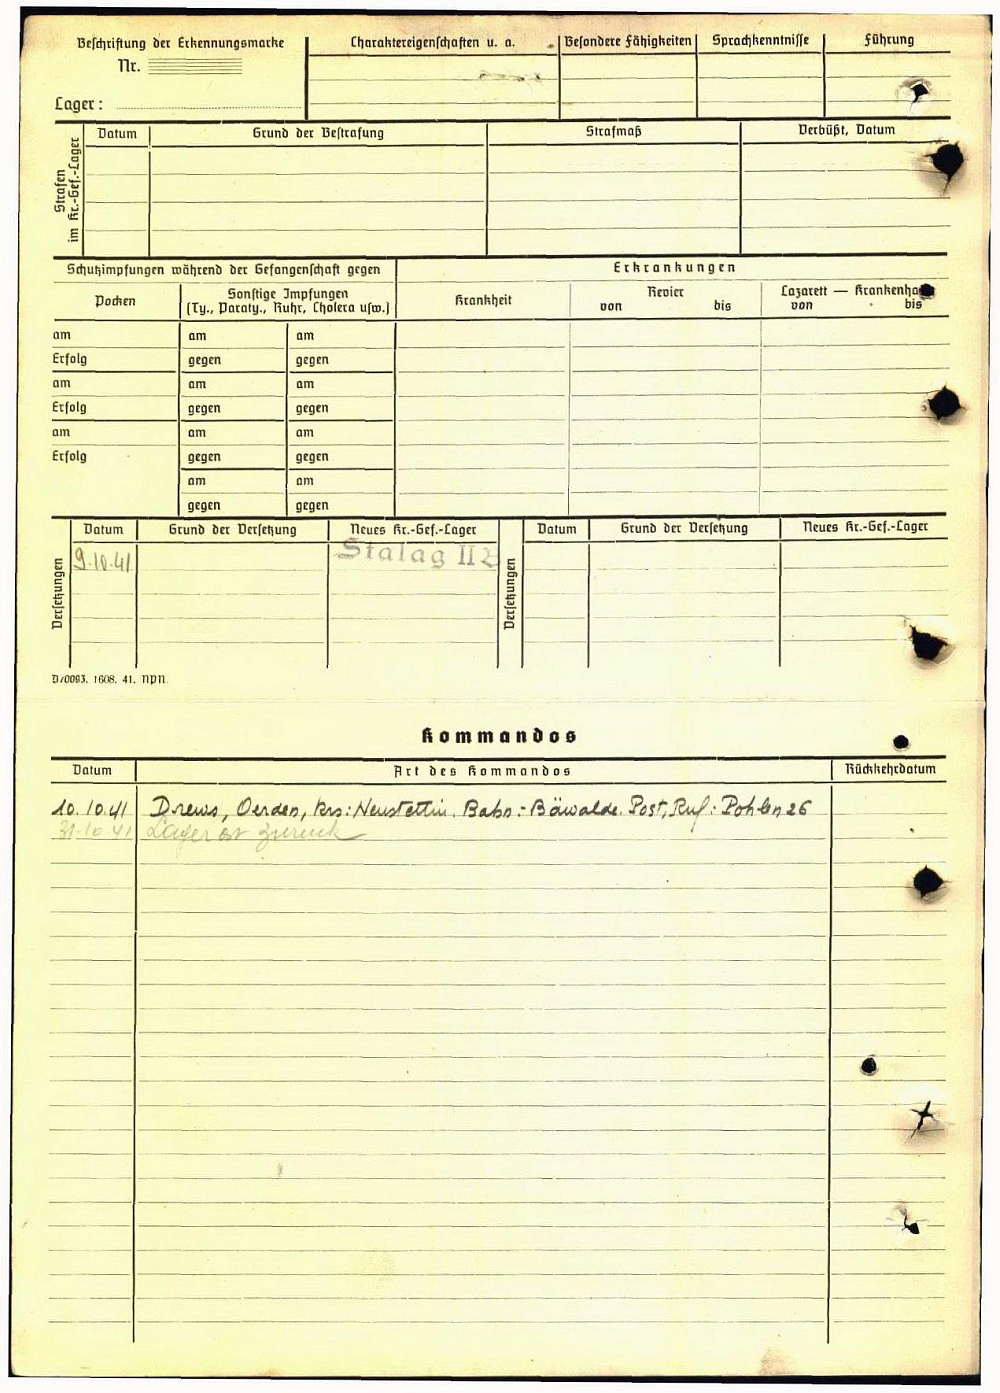 Beschriftung der Erkennungsmarke
Nr.
Lager:
Charaktereigenschaften u. a.
Besondere Fähigkeiten
Sprachkenntnisse
Führung
Strafen im Kr.-Gef.-Lager
Datum
Grund der Bestrafung
Strafmaß
Verbüßt, Datum
Schutzimpfungen während der Gefangenschaft gegen
Erkrankungen
Pocken
Sonstige Impfungen
(Ty., Paraty., Ruhr, Cholera usw.)
Krankheit
Revier
von bis
Lazarett — Krankenha
von bis
am am am
Erfolg gegen gegen
am am am
Erfolg gegen gegen
am am am
Erfolg gegen gegen
am am
gegen gegen
Versetzungen
Datum Grund der Versetzung Neues Kr.-Gef.-Lager
9.10.41 Stalag II B
Versetzungen
Datum Grund der Versetzung Neues Kr.-Gef.-Lager
D/0093. 1608. 41. NPN
Kommandos
Datum Art des Kommandos Rückkehrdatum
10.10.41 Drews, Oerden, Krs: Neustettin. Bahn: Bäwalde. Post, Ruf: Pohlen 26
31.10.41 Lager zurück